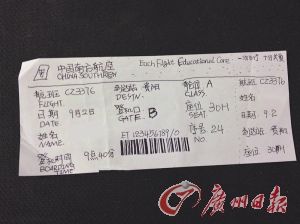 中国南方航空
CHINA SOUTHREN
Each Flight Educational Core
航班 CZ3376
FLIGHT
日期 9月2日
DATE
姓名
NAME
登机时间 9点40分
BOARDING TIME
目的地 贵阳
DESTN.
登机口
GATE B
ET 123456189/0
舱位 A
CLASS
座位 30H
SEAT
序号 24
NO.
航班 CZ3376
姓名
日期 9.2
目的地 贵阳
座位 30H
廣州日報